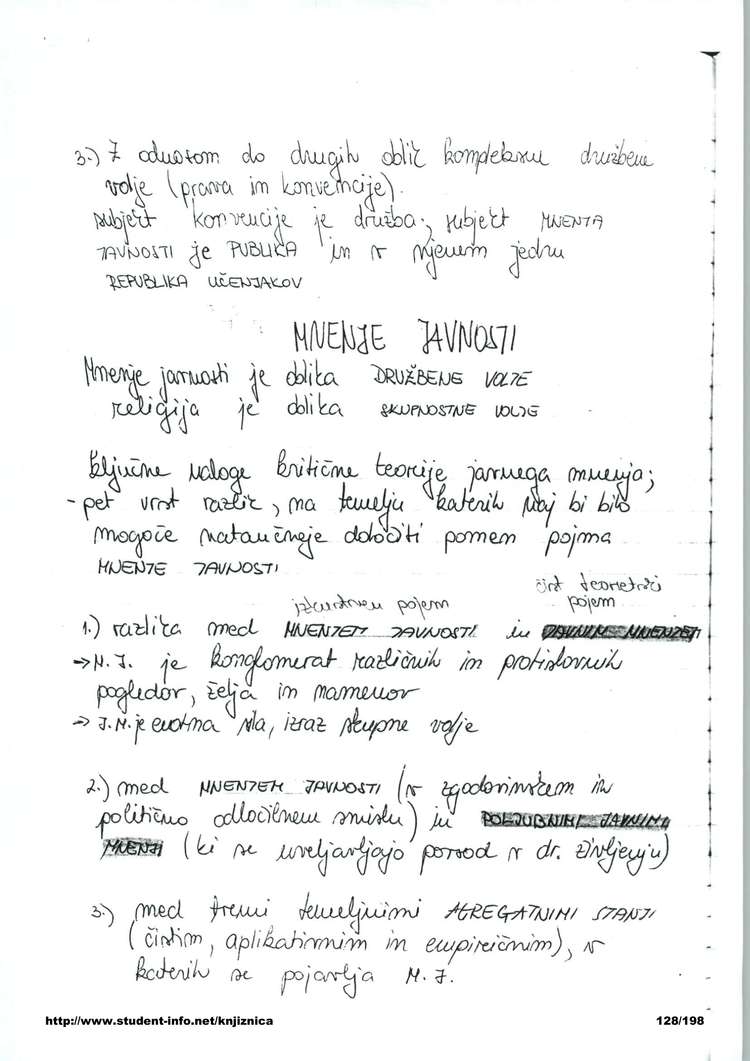 3.) Z odnosom do drugih oblik kompleksne družbene
volje (prava in konvencije).
subjekt konvencije je družba; subjekt MNENJA
JAVNOSTI je PUBLIKA in v njenem jedru
REPUBLIKA UČENJAKOV
MNENJE JAVNOSTI
Mnenje javnosti je oblika DRUŽBENE VOLJE
religija je oblika SKUPNOSTNE VOLJE
ključne naloge kritične teorije javnega mnenja;
- pet vrst razlik, na temelju katerih naj bi bilo
mogoče natančneje določiti pomen pojma
MNENJE JAVNOSTI
izkustven pojem
čist teoretski
pojem
1.) razlika med MNENJEM JAVNOSTI in JAVNIM MNENJEM
→ M. J. je konglomerat različnih in protislovnih
pogledov, želja in namenov
→ J. M. je enotna sila, izraz skupne volje
2.) med MNENJEM JAVNOSTI (v zgodovinskem in
politično odločilnem smislu) in POLJUBNIMI JAVNIMI
MNENJI (ki se uveljavljajo povsod v dr. življenju)
3.) med tremi temeljnimi AGREGATNIMI STANJI
(čistim, aplikativnim in empiričnim), v
katerih se pojavlja M. J.
http://www.student-info.net/knjiznica
128/198